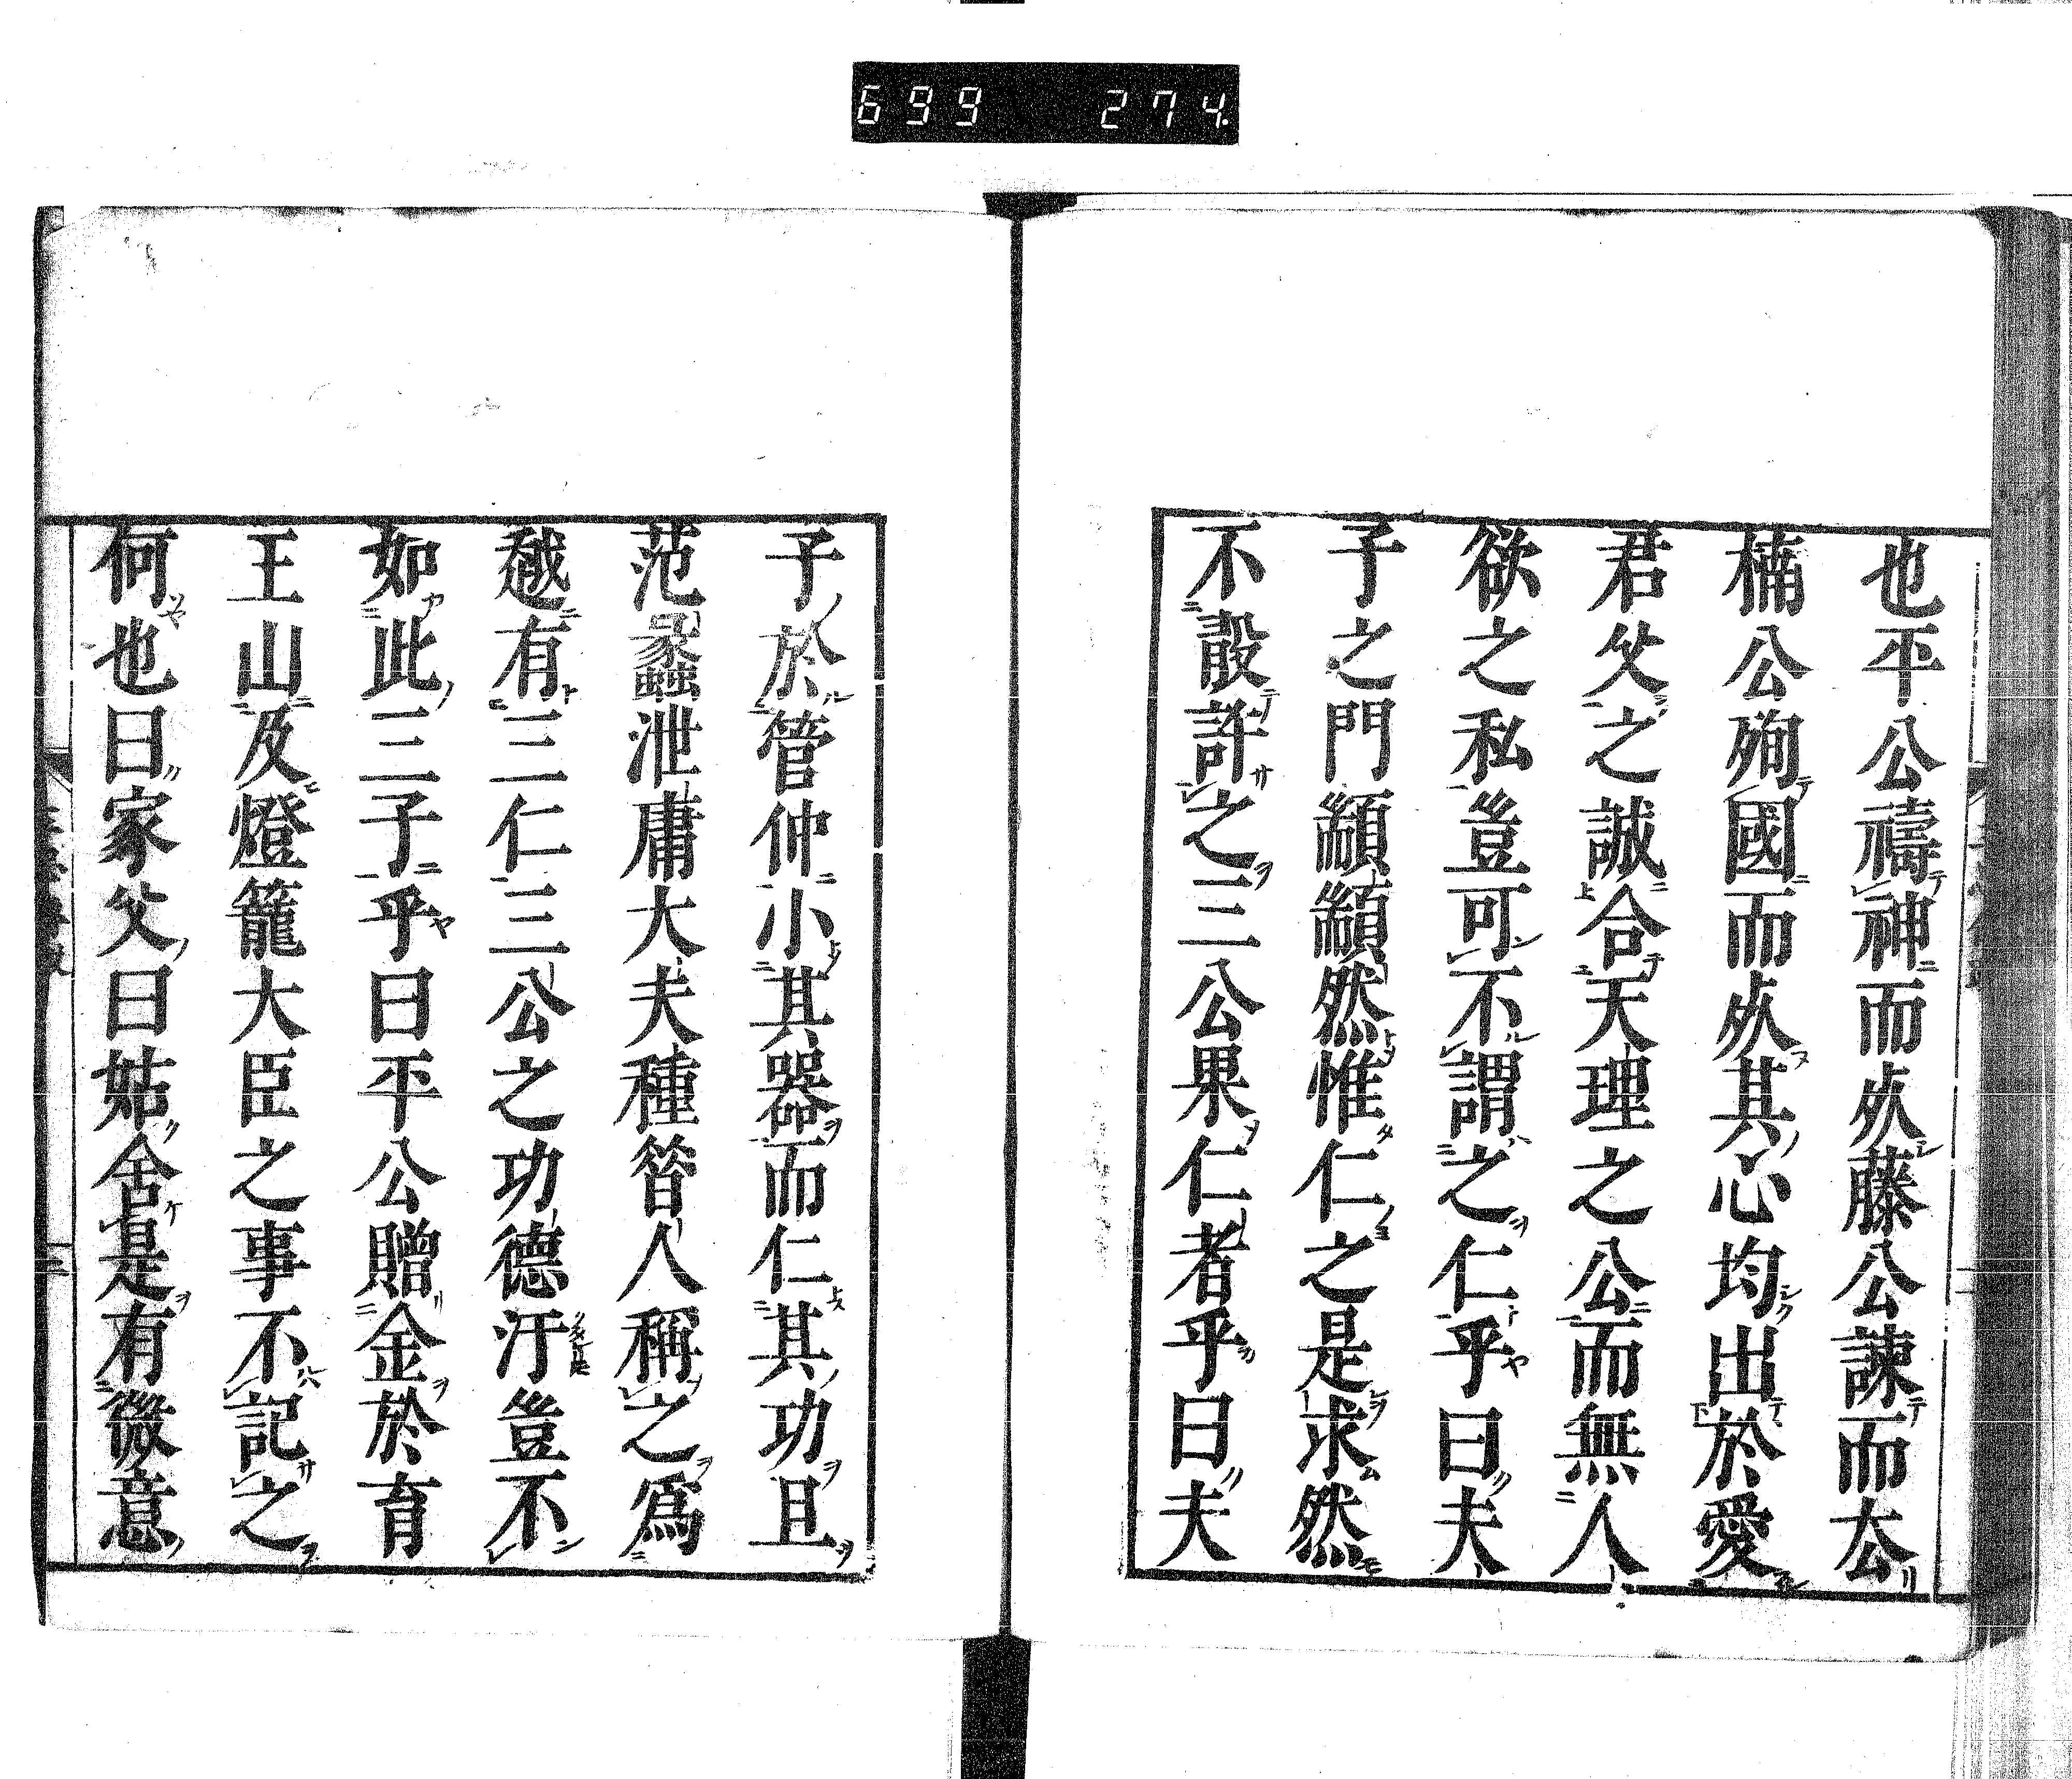 699 274.
也平公禱神而死藤公諫而去
楠公殉國而死其心均出於愛
君父之誠合天理之公而無人
欲之私豈可不謂之仁乎曰夫
子之門顓顓然惟仁之是求然
不輕許之三公果仁者乎曰夫
子於管仲小其器而仁其功且
范蠡泄庸大夫種昔人稱之爲
越有三仁三公之功德汙豈不
如此三子乎曰平公贈金於育
王山及燈籠大臣之事不記之
何也曰家父曰姑舍是有微意